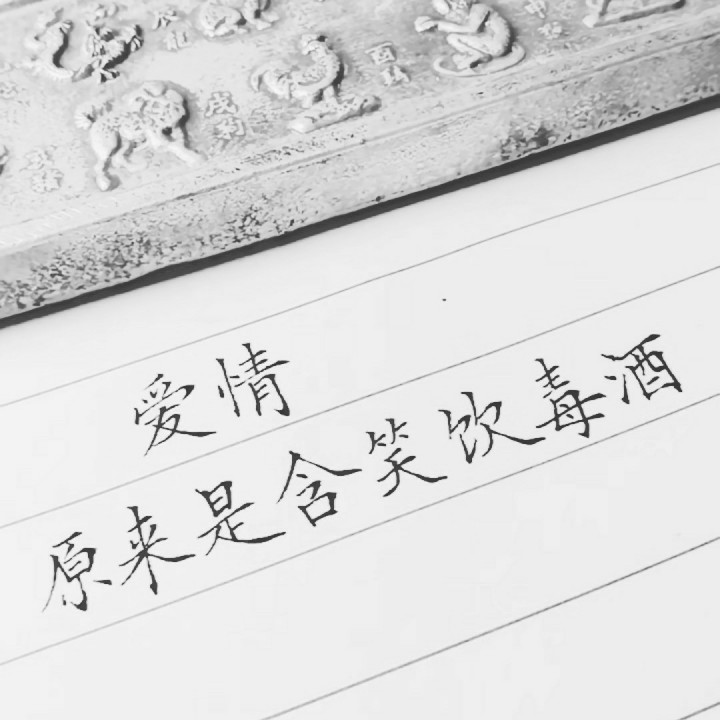 爱情
原来是含笑饮毒酒